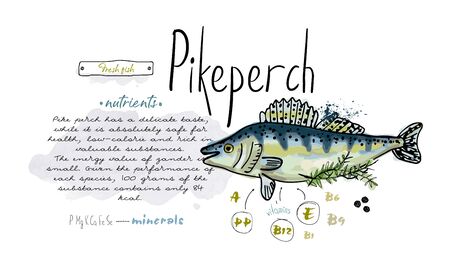 Fresh fish
Pikeperch
• nutrients •
Pike perch has a delicate taste,
while it is absolutely safe for
health, low-calorie and rich in
valuable substances.
The energy value of zander is
small. Given the performance of
each species, 100 grams of the
substance contains only 84
kcal.
P Mg K Ca Fe Se — minerals
vitamins
A E B6
PP B12 B1 B9